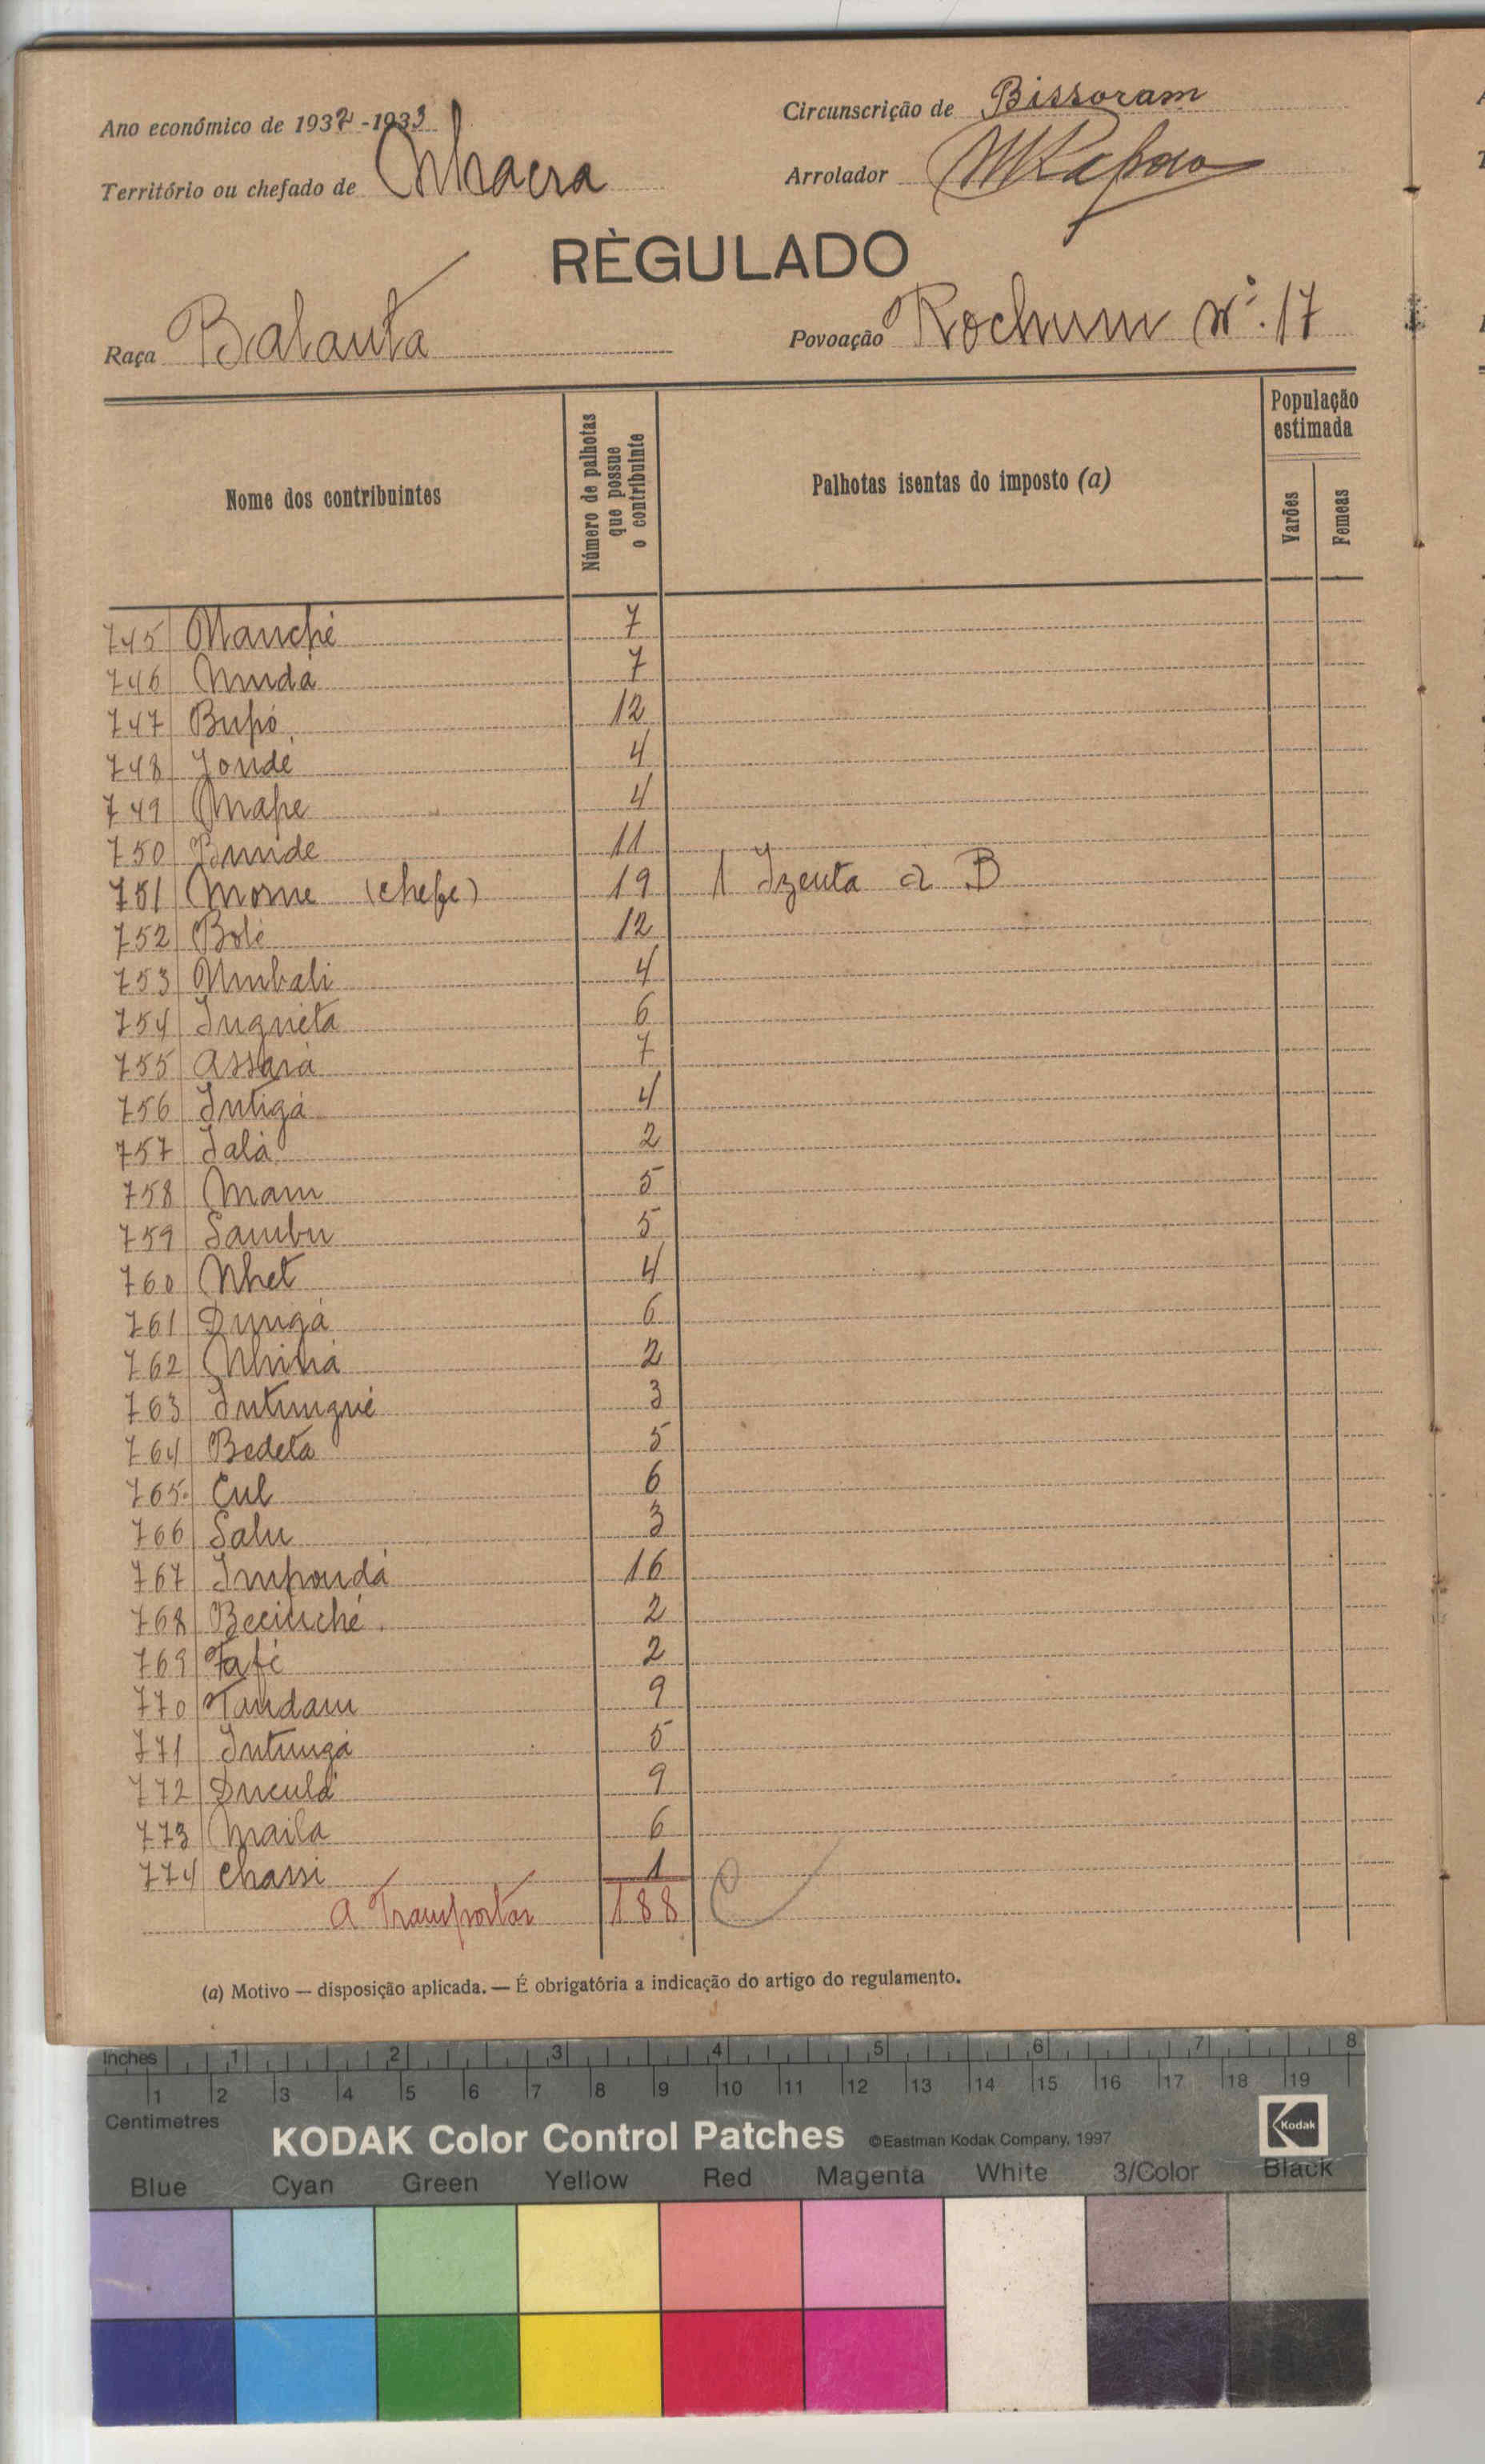 Ano económico de 1932-1933
Circunscrição de Bissoram
Território ou chefado de Nhacra
Arrolador
RÈGULADO
Raça Balanta
Povoação Rochum Nº. 17
Nome dos contribuintes
Número de palhotas que possue o contribuinte
Palhotas isentas do imposto (a)
População estimada
Varões
Femeas
745 Manché 7
746 Mudá 7
747 Bupó 12
748 Jondé 4
749 Mape 4
750 Bunde 11
751 Morne (chefe) 19 1 Izenta a B
752 Bolé 12
753 Umbali 4
754 Inquéta 6
755 Assará 7
756 Intigá 4
757 Jalá 2
758 Mam 5
759 Sambu 5
760 Nhet 4
761 Dungá 6
762 Nhiná 2
763 Intungué 3
764 Bedeta 5
765 Cul 6
766 Salu 3
767 Impondá 16
768 Becinché 2
769 Tafé 2
770 Tandam 9
771 Intungá 5
772 Duculá 9
773 Maila 6
774 Chassi 1
A Transportar 188
(a) Motivo — disposição aplicada. — É obrigatória a indicação do artigo do regulamento.
Inches 1 2 3 4 5 6 7 8
1 2 3 4 5 6 7 8 9 10 11 12 13 14 15 16 17 18 19
Centimetres
KODAK Color Control Patches ©Eastman Kodak Company, 1997 Kodak
Blue Cyan Green Yellow Red Magenta White 3/Color Black